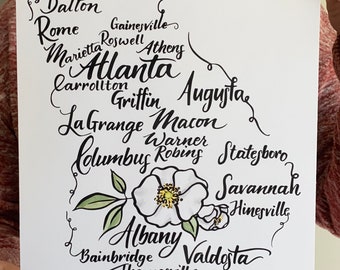 Dalton
Gainesville
Rome
Roswell
Marietta
Athens
Atlanta
Carrollton
Augusta
Griffin
LaGrange
Macon
Warner
Robins
Columbus
Statesboro
Savannah
Hinesville
Albany
Bainbridge
Valdosta
Thomasville